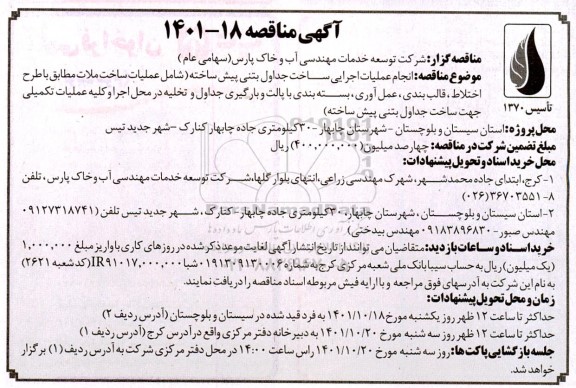 آگهی مناقصه ۱۸-۱۴۰۱
مناقصه گزار: شرکت توسعه خدمات مهندسی آب و خاک پارس (سهامی عام)
موضوع مناقصه: انجام عملیات اجرایی ساخت جداول بتنی پیش ساخته (شامل عملیات ساخت ملات مطابق با طرح
اختلاط، قالب بندی، عمل آوری، بسته بندی با پالت و بارگیری جداول و تخلیه در محل اجرا و کلیه عملیات تکمیلی
جهت ساخت جداول بتنی پیش ساخته)
تأسیس ۱۳۷۰
محل پروژه: استان سیستان و بلوچستان - شهرستان چابهار - ۳۰ کیلومتری جاده چابهار کنارک - شهر جدید تیس
مبلغ تضمین شرکت در مناقصه: چهارصد میلیون (۴۰۰,۰۰۰,۰۰۰) ریال
محل خرید اسناد و تحویل پیشنهادات:
۱- کرج، ابتدای جاده محمدشهر، شهرک مهندسی زراعی، انتهای بلوار گلها، شرکت توسعه خدمات مهندسی آب و خاک پارس، تلفن
۸-۳۶۷۰۳۵۵۱ (۰۲۶)
۲- استان سیستان و بلوچستان، شهرستان چابهار، ۳۰ کیلومتری جاده چابهار - کنارک، شهر جدید تیس تلفن (۰۹۱۲۷۳۱۸۷۴۱
مهندس صبور - ۰۹۱۸۳۸۹۶۸۳۰ مهندس بیدختی)
خرید اسناد و ساعات بازدید: متقاضیان می توانند از تاریخ انتشار آگهی لغایت موعد ذکر شده در روزهای کاری با واریز مبلغ ۱,۰۰۰,۰۰۰
(یک میلیون) ریال به حساب سیبا بانک ملی شعبه مرکزی کرج به شماره ۰۱۹۱۳۰۹۱۳۰۰۰۶ شبا IR۹۱۰۱۷۰۰۰۰۰۰ (کد شعبه ۲۶۲۱)
به نام این شرکت به آدرسهای فوق مراجعه و با ارایه فیش مربوطه اسناد مناقصه را دریافت نمایند.
زمان و محل تحویل پیشنهادات:
حداکثر تا ساعت ۱۲ ظهر روز یکشنبه مورخ ۱۴۰۱/۱۰/۱۸ به فرد قید شده در سیستان و بلوچستان (آدرس ردیف ۲)
حداکثر تا ساعت ۱۲ ظهر روز سه شنبه مورخ ۱۴۰۱/۱۰/۲۰ به دبیرخانه دفتر مرکزی واقع در آدرس کرج (آدرس ردیف ۱)
جلسه بازگشایی پاکت ها: روز سه شنبه مورخ ۱۴۰۱/۱۰/۲۰ راس ساعت ۱۴:۰۰ در محل دفتر مرکزی شرکت به آدرس ردیف (۱) برگزار
خواهد شد.